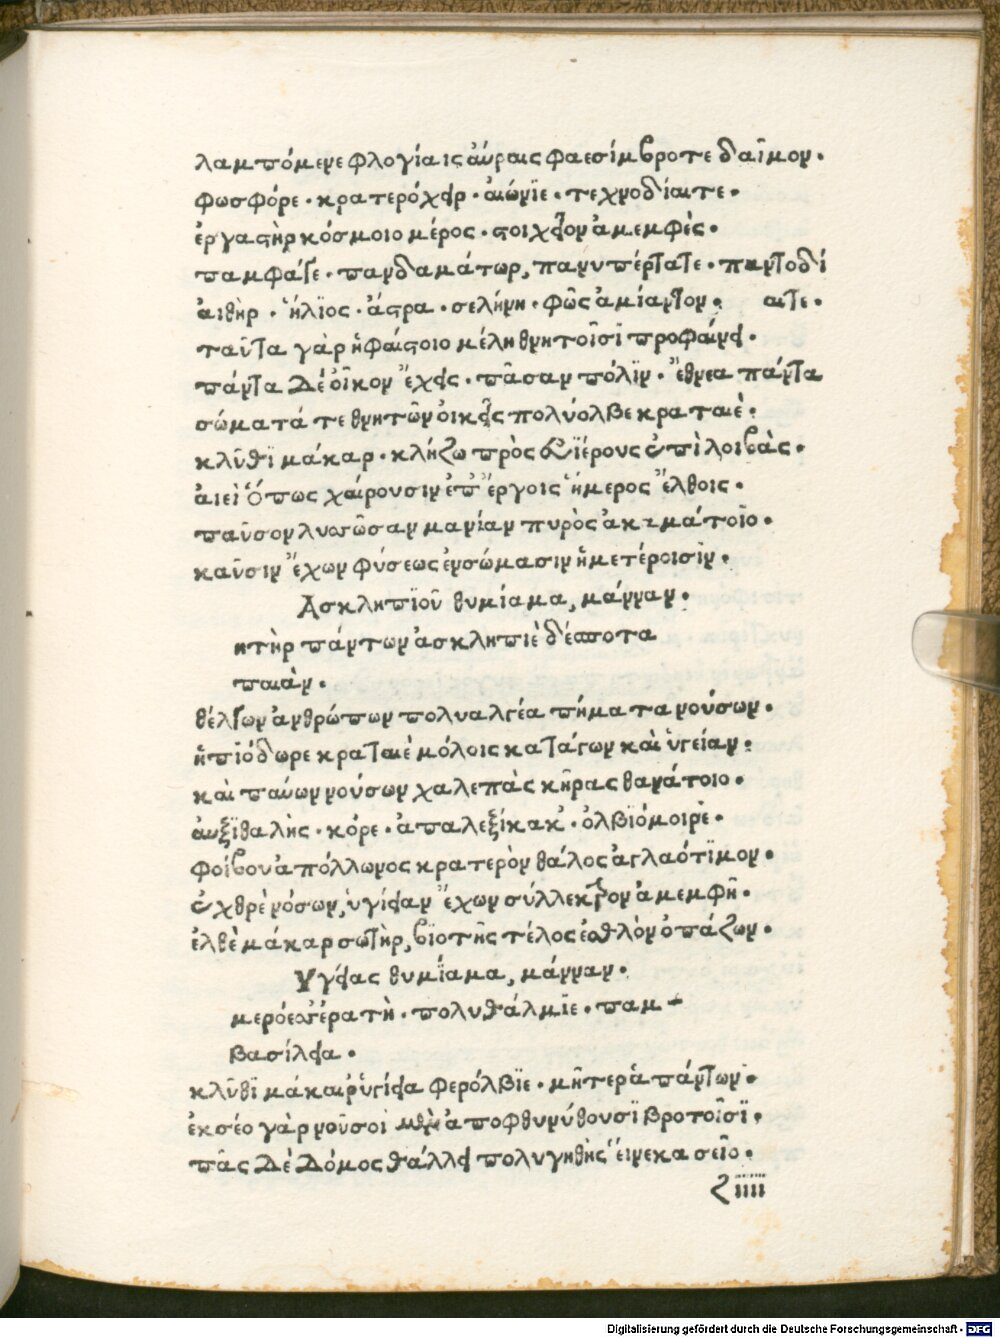 λαμπόμενε φλογίαις αὐραις φαεσίμβροτε δαῖμον.
φωσφόρε. κρατερόχειρ. αἰώνϊε. τεχνοδίαιτε.
ἐργαστὴρ κόσμοιο μέρος. στοιχεῖον ἀμεμφὲς.
παμφάγε. πανδαμάτωρ, πανυπέρτατε. παντοδί
αιτε.
ἀιθὴρ. ἥλϊος. ἄστρα. σελήνη. φῶς ἀμίαντον.
ταῦτα γὰρ ἡφαίστοιο μέλη θνητοῖσϊ προφαίνει.
πάντα δὲ οἶκον ἔχεις. πᾶσαν πόλϊν. ἔθνεα πάντα
σώματά τε θνητῶν οἰκεῖς πολύολβε κραταιὲ.
κλῦθϊ μάκαρ. κλήζω πρὸς ἐυϊέρους ἐπὶ λοιβὰς.
ἀιεὶ ὅπως χαίρουσιν ἐπ' ἔργοις ἥμερος ἔλθοις.
παῦσον λυσσῶσαν μανίαν πυρὸς ἀκαμάτοϊο.
καῦσιν ἔχων φύσεως ἐν σώμασιν ἡμετέροισϊν.
Ἀσκληπϊοῦ θυμίαμα, μάνναν.
ητὴρ πάντων ἀσκληπιὲ δέσποτα
παιὰν.
θέλγων ἀνθρώπων πολυαλγέα πήματα νούσων.
ἠπϊόδωρε κραταιὲ μόλοις κατάγων καὶ ὑγείαν.
καὶ παύων νούσων χαλεπὰς κῆρας θανάτοιο.
ἀυξϊθαλὴς. κόρε. ἀπαλεξίκακ'. ὀλβϊόμοιρε.
φοίβου ἀπόλλωνος κρατερὸν θάλος ἀγλαότϊμον.
ἐχθρὲ νόσων, ὑγίειαν ἔχων σύλλεκτρον ἀμεμφῆ.
ἐλθὲ μάκαρ σωτὴρ, βϊοτῆς τέλος ἐσθλὸν ὀπάζων.
Υγείας θυμίαμα, μάνναν.
μερόεσσ' ἐρατὴ. πολυθάλμϊε. παμ-
βασίλεια.
κλῦθϊ μάκαιρ' ὑγίεια φερόλβϊε. μῆτερ ἁπάντων.
ἐκ σέο γὰρ νοῦσοι μὲν ἀποφθινύθουσϊ βροτοῖσϊ.
πᾶς δὲ δόμος θάλλει πολυγηθὴς εἵνεκα σεῖο.
ζ iiii
Digitalisierung gefördert durch die Deutsche Forschungsgemeinschaft - DFG